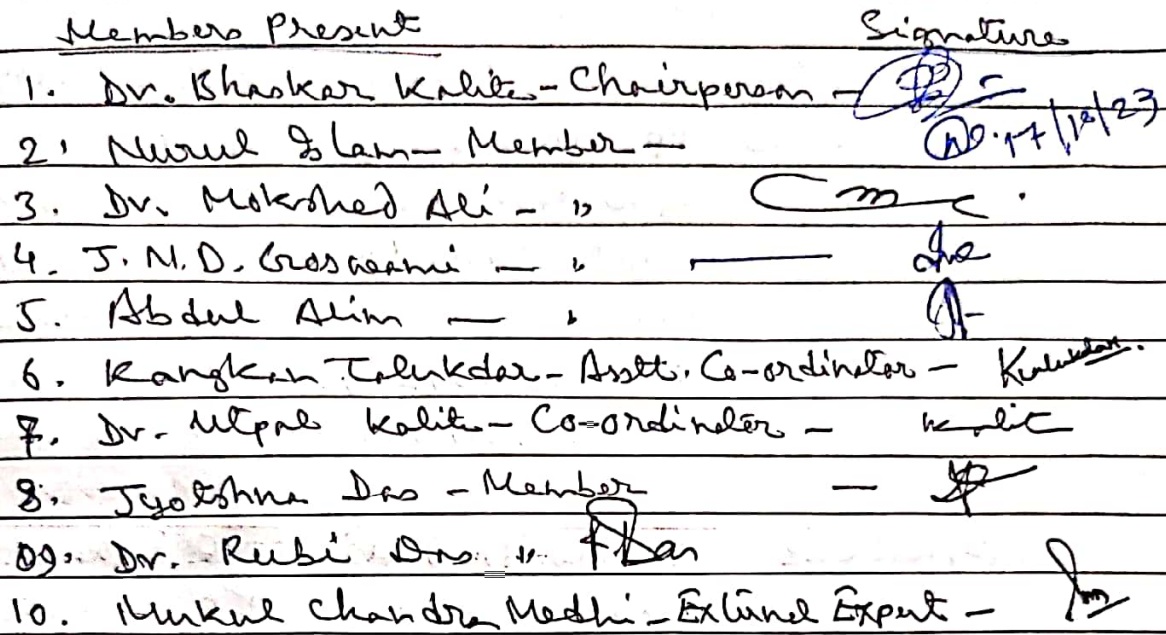 Members Present Signature
1. Dr. Bhaskar Kalita - Chairperson -
17/10/23
2. Nurul Islam - Member -
3. Dr. Mokshed Ali - "
4. J. N. D. Goswami - "
5. Abdul Alim - "
6. Kangkan Talukdar - Asstt. Co-ordinator - KTalukdar.
7. Dr. Utpal Kalita - Co-ordinator - Kalit
8. Jyotshna Das - Member -
09. Dr. Rubi Das " RDas
10. Mukul Chandra Medhi - External Expert -